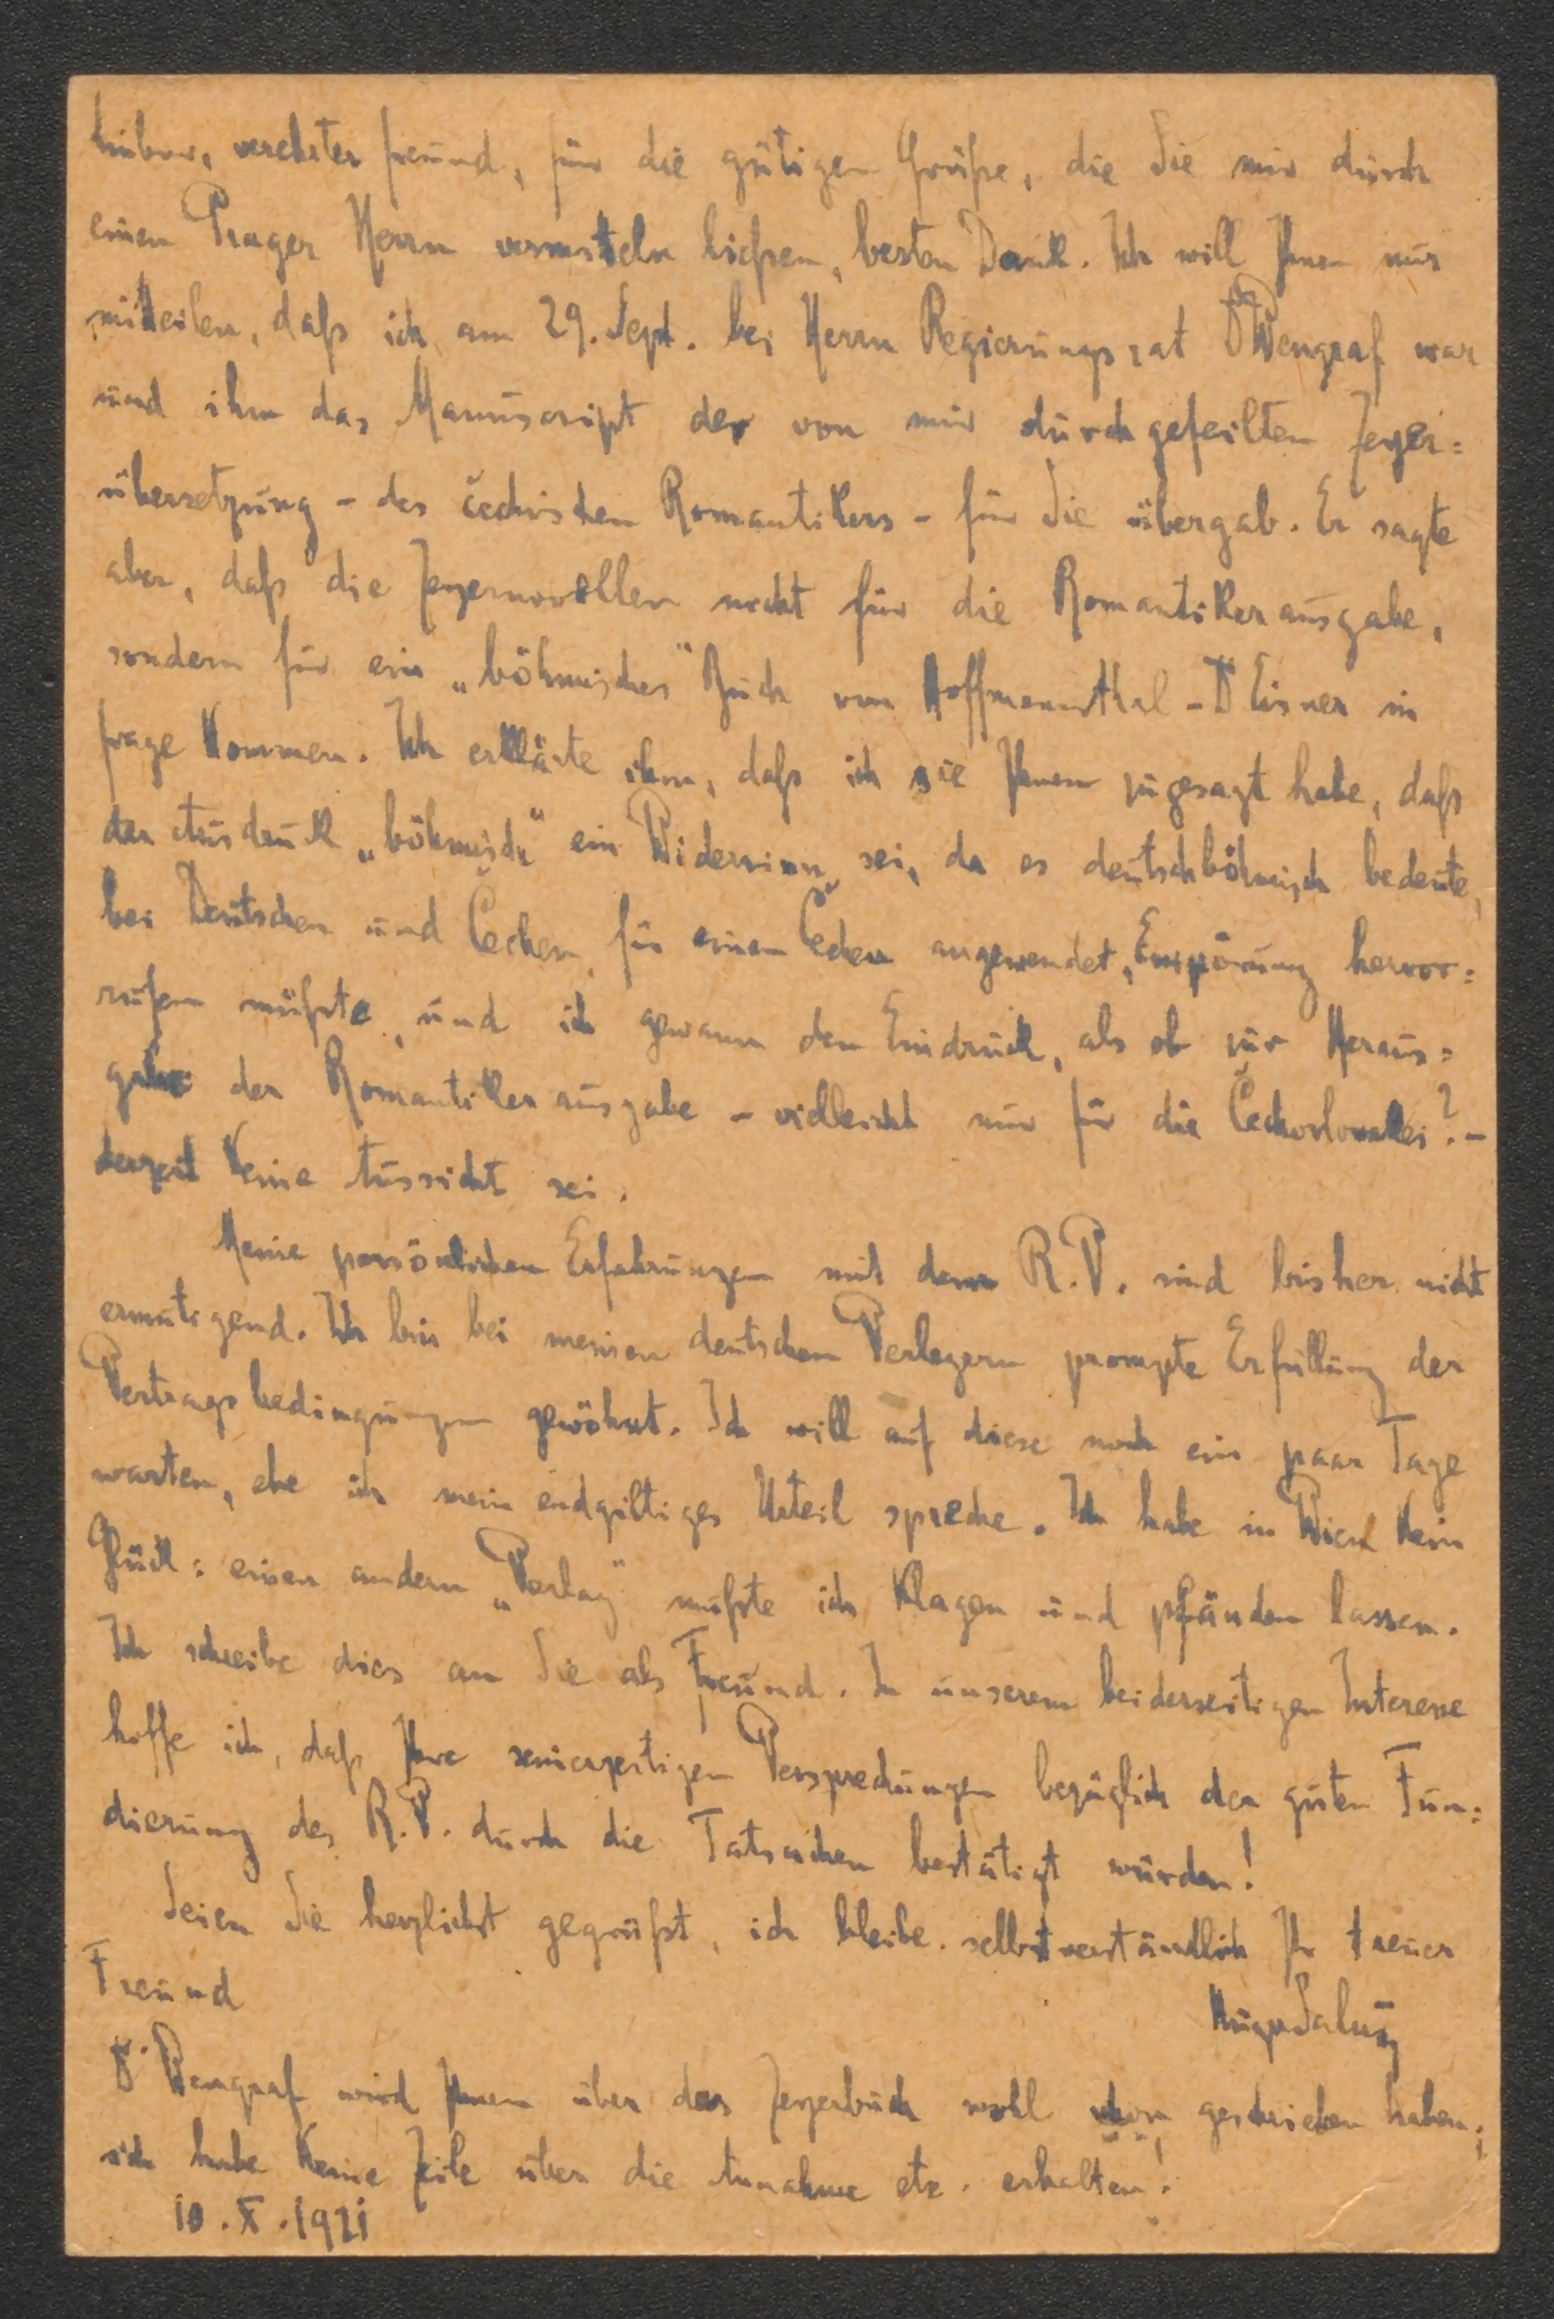 Lieber, verehrter Freund, für die gütigen Grüße, die Sie mir durch
einen Prager Herrn vermitteln ließen, besten Dank. Ich will Ihnen nur
mitteilen, daß ich am 29. Sept. bei Herrn Regierungsrat Dr Wengraf war
und ihm das Manuscript der von mir durchgefeilten Zeyer=
übersetzung - des čechischen Romantikers - für Sie übergab. Er sagte
aber, daß die Zeyernovellen nicht für die Romantikerausgabe,
sondern für ein „böhmisches" Buch von Hoffmannsthal - Dr Eisner in
Frage kommen. Ich erklärte ihm, daß ich sie Ihnen zugesagt habe, daß
der Ausdruck „böhmisch" ein Widersinn sei, da es deutschböhmisch bedeute,
bei Deutschen und Čechen, für einen Čechen angewendet, Empörung hervor=
rufen müßte, und ich gewann den Eindruck, als ob zur Heraus=
gabe der Romantikerausgabe - vielleicht nur für die Čechoslovakei? -
derzeit keine Aussicht sei.
Meine persönlichen Erfahrungen mit dem R.V. sind bisher nicht
ermutigend. Ich bin bei meinen deutschen Verlegern prompte Erfüllung der
Vertragsbedingungen gewöhnt. Ich will auf diese noch ein paar Tage
warten, ehe ich mein endgiltiges Urteil spreche. Ich habe in Wien kein
Glück: einen andern „Verlag" mußte ich klagen und pfänden lassen.
Ich schreibe dies an Sie als Freund. In unserem beiderseitigen Interesse
hoffe ich, daß Ihre seinerzeitigen Versprechungen bezüglich der guten Fun=
dierung des R.V. durch die Tatsachen bestätigt würden!
Seien Sie herzlichst gegrüßt, ich bleibe selbstverständlich Ihr treuer
Freund
Hugo Salus
Dr. Wengraf wird Ihnen über das Zeyerbuch wohl schon geschrieben haben;
ich habe keine Zeile über die Annahme etc. erhalten!
10.X.1921